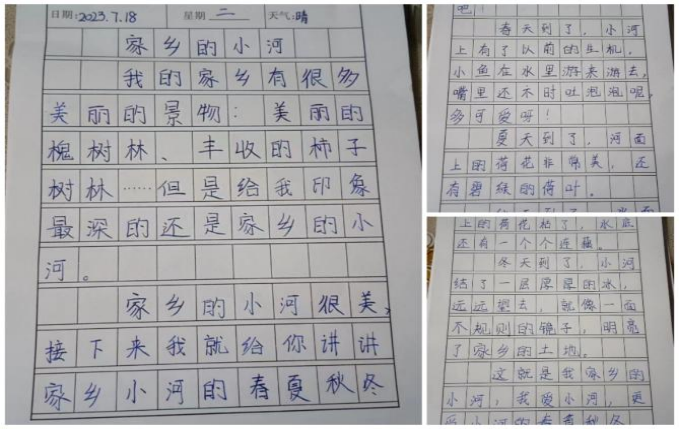 日期:2023.7.18 星期 二 天气:晴
家乡的小河
我的家乡有很多
美丽的景物：美丽的
槐树林、丰收的柿子
树林……但是给我印象
最深的还是家乡的小
河。
家乡的小河很美，
接下来我就给你讲讲
家乡小河的春夏秋冬
吧！
春天到了，小河
上有了以前的生机，
小鱼在水里游来游去，
嘴里还不时吐泡泡呢，
多可爱呀！
夏天到了，河面
上的荷花非常美，还
有碧绿的荷叶。
上的荷花枯了，水底
还有一个个莲藕。
冬天到了，小河
结了一层厚厚的冰，
远远望去，就像一面
不规则的镜子，明亮
了家乡的土地。
这就是我家乡的
小河，我爱小河，更
爱小河的春夏秋冬